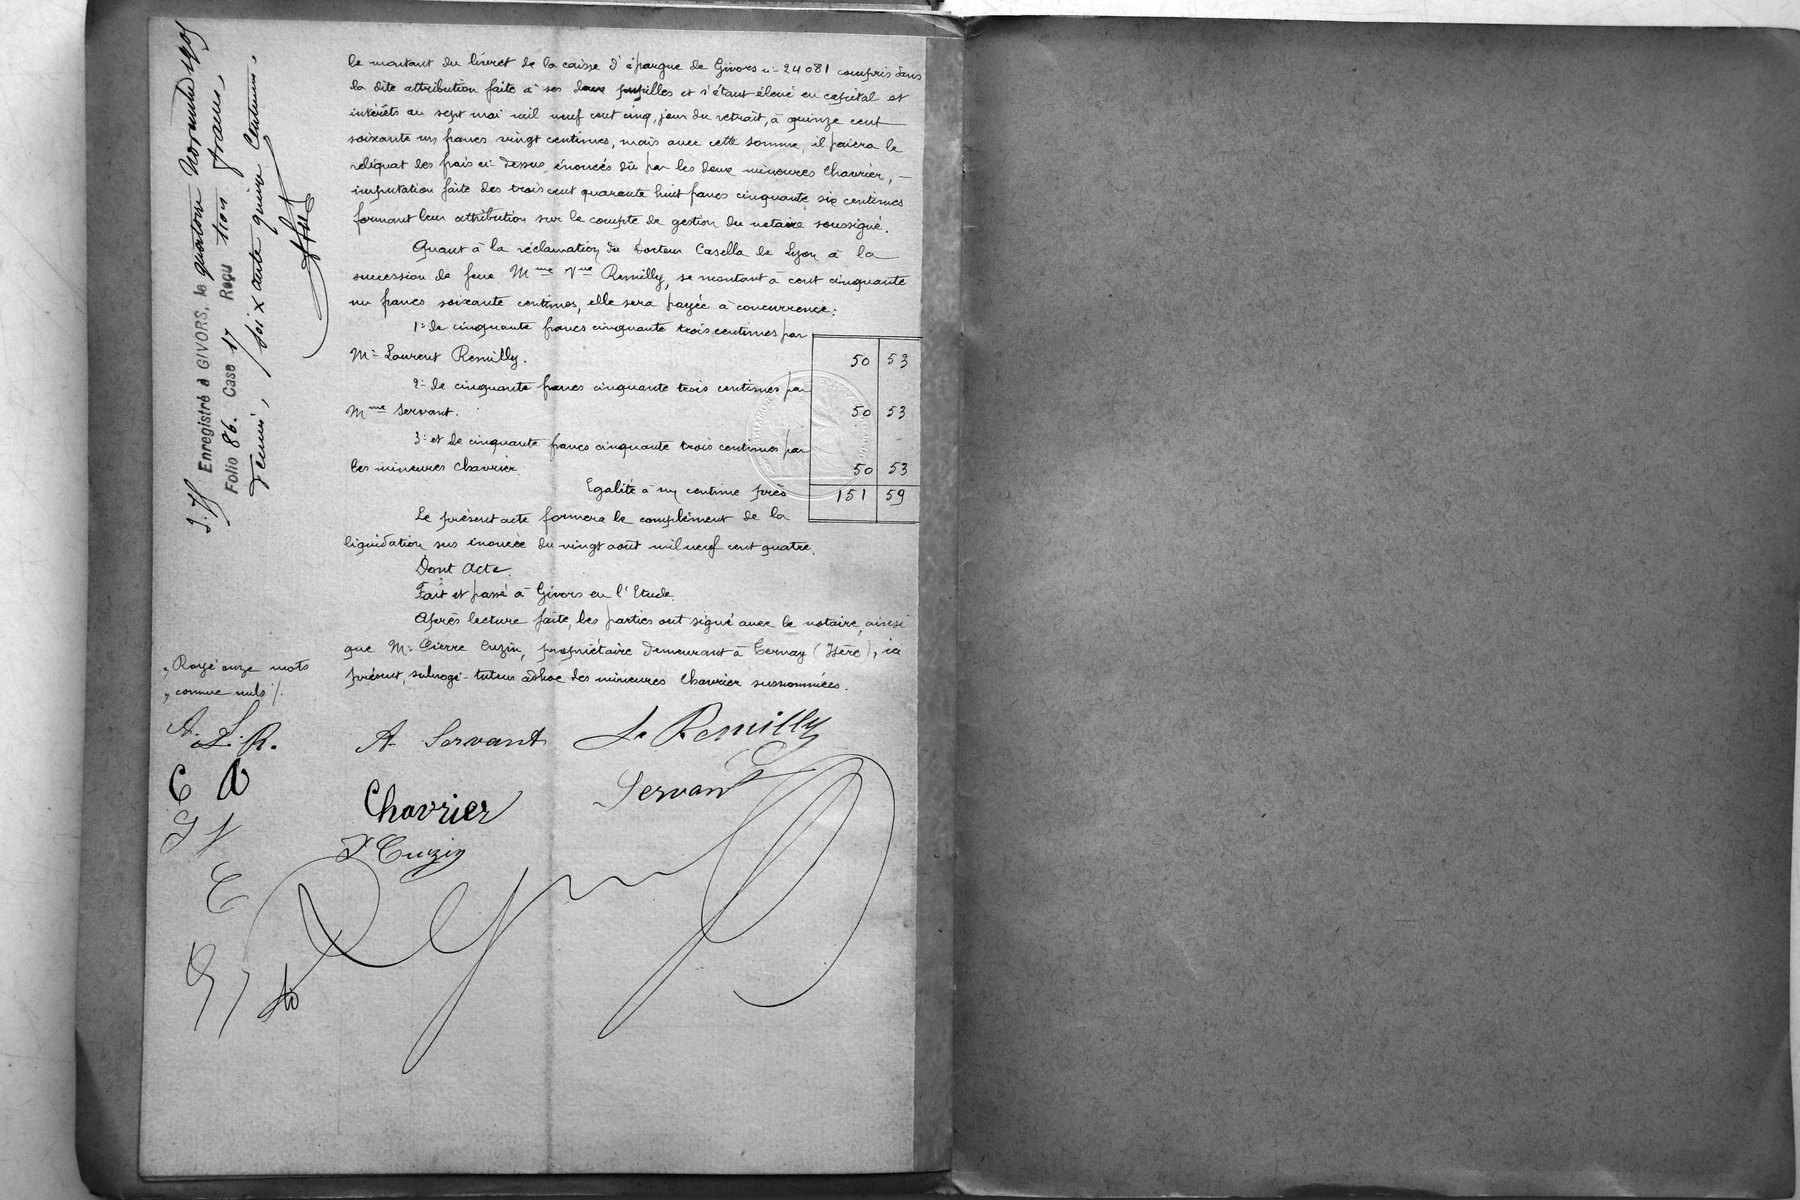 le montant du livret de la caisse d'épargne de Givors n° 24081 compris dans
la dite attribution faite à ses deux pupilles et s'étant élevé en capital et
intérêts au sept mai mil neuf cent cinq, jour du retrait, à quinze cent
soixante un francs vingt centimes, mais avec cette somme, il paiera le
reliquat des frais ci-dessus énoncés dû par les deux mineures Chavrier, —
imputation faite des trois cent quarante huit francs cinquante six centimes
formant leur attribution sur le compte de gestion du notaire soussigné.
Quant à la réclamation du Docteur Casella de Lyon à la
succession de feue Mme Vve Remilly, se montant à cent cinquante
un francs soixante centimes, elle sera payée à concurrence:
1° de cinquante francs cinquante trois centimes par
Mr Laurent Remilly. 50 53
2° de cinquante francs cinquante trois centimes par
Mme Servant. 50 53
3° et de cinquante francs cinquante trois centimes par
les mineures Chavrier. 50 53
Egalité à un centime près 151 59
Le présent acte formera le complément de la
liquidation sus énoncée du vingt août mil neuf cent quatre.
Dont Acte.
Fait et passé à Givors en l'Etude.
Après lecture faite, les parties ont signé avec le notaire, ainsi
que Mr Pierre Cuzin, propriétaire demeurant à Ternay (Isère), ici
présent, subrogé-tuteur adhoc des mineures Chavrier susnommées.
Rayé onze mots
comme nuls /.
A. L. R.
A. Servant L. Remilly
C
Chavrier Servant
P Cuzin
Enregistré à GIVORS, le quatorze Novembre 1905
Folio 86. Case 17 Reçu francs,
soixante quinze centimes.